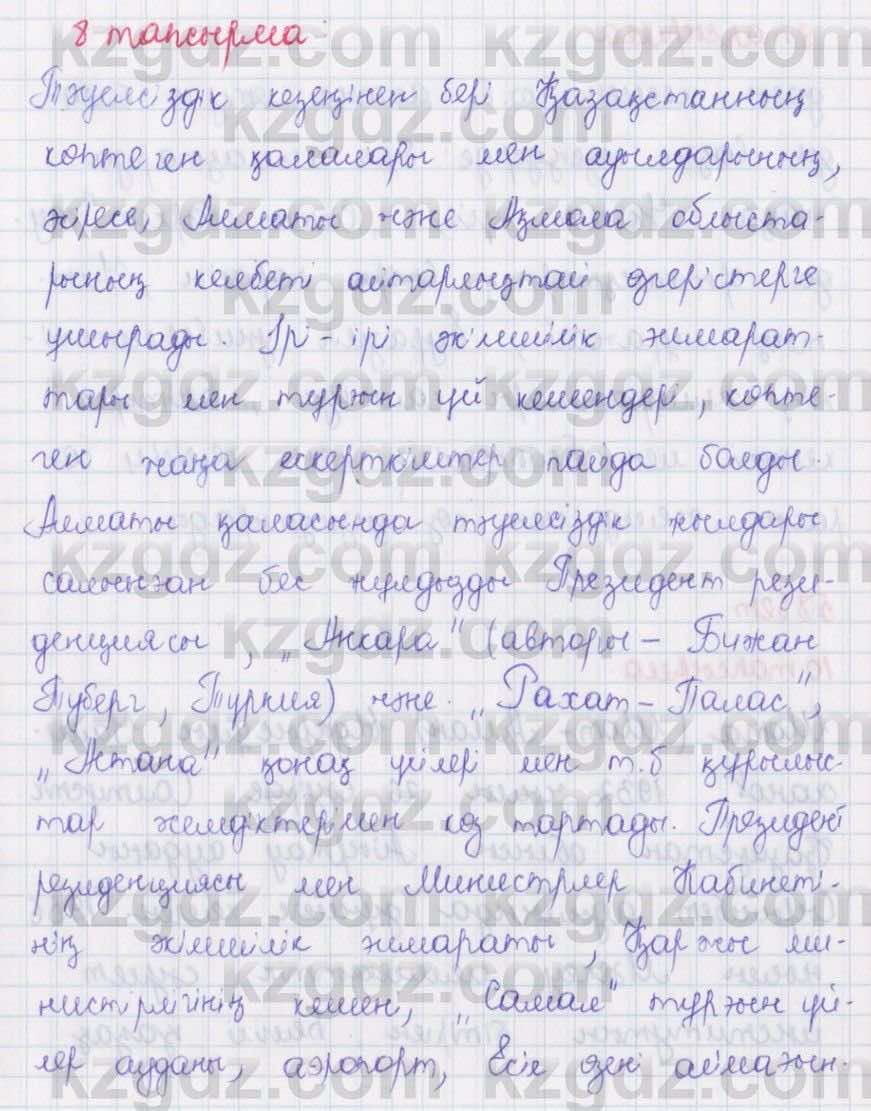 8 тапсырма
Тәуелсіздік кезеңінен бері Қазақстанның
көптеген қалалары мен ауылдарының,
әсіресе, Алматы және Ақмола облыста-
рының келбеті айтарлықтай өзгерістерге
ұшырады. Ірі-ірі әкімшілік ғимарат-
тары мен тұрғын үй кешендері, көпте-
ген жаңа ескерткіштер пайда болды.
Алматы қаласында тәуелсіздік жылдары
салынған бес жұлдызды Президент рези-
денциясы, „Анкара" (авторы – Бижан
Туберг, Түркия) және „Рахат – Палас",
„Астана" қонақ үйлері мен т.б құрылыс-
тар әсемдіктерімен көз тартады. Президент
резиденциясы мен Министрлер Кабинеті-
нің әкімшілік ғимараты, Қаржы ми-
нистірлігінің кешені, „Самал" тұрғын үй-
лер ауданы, аэропорт, Есіл өзені аймағын-